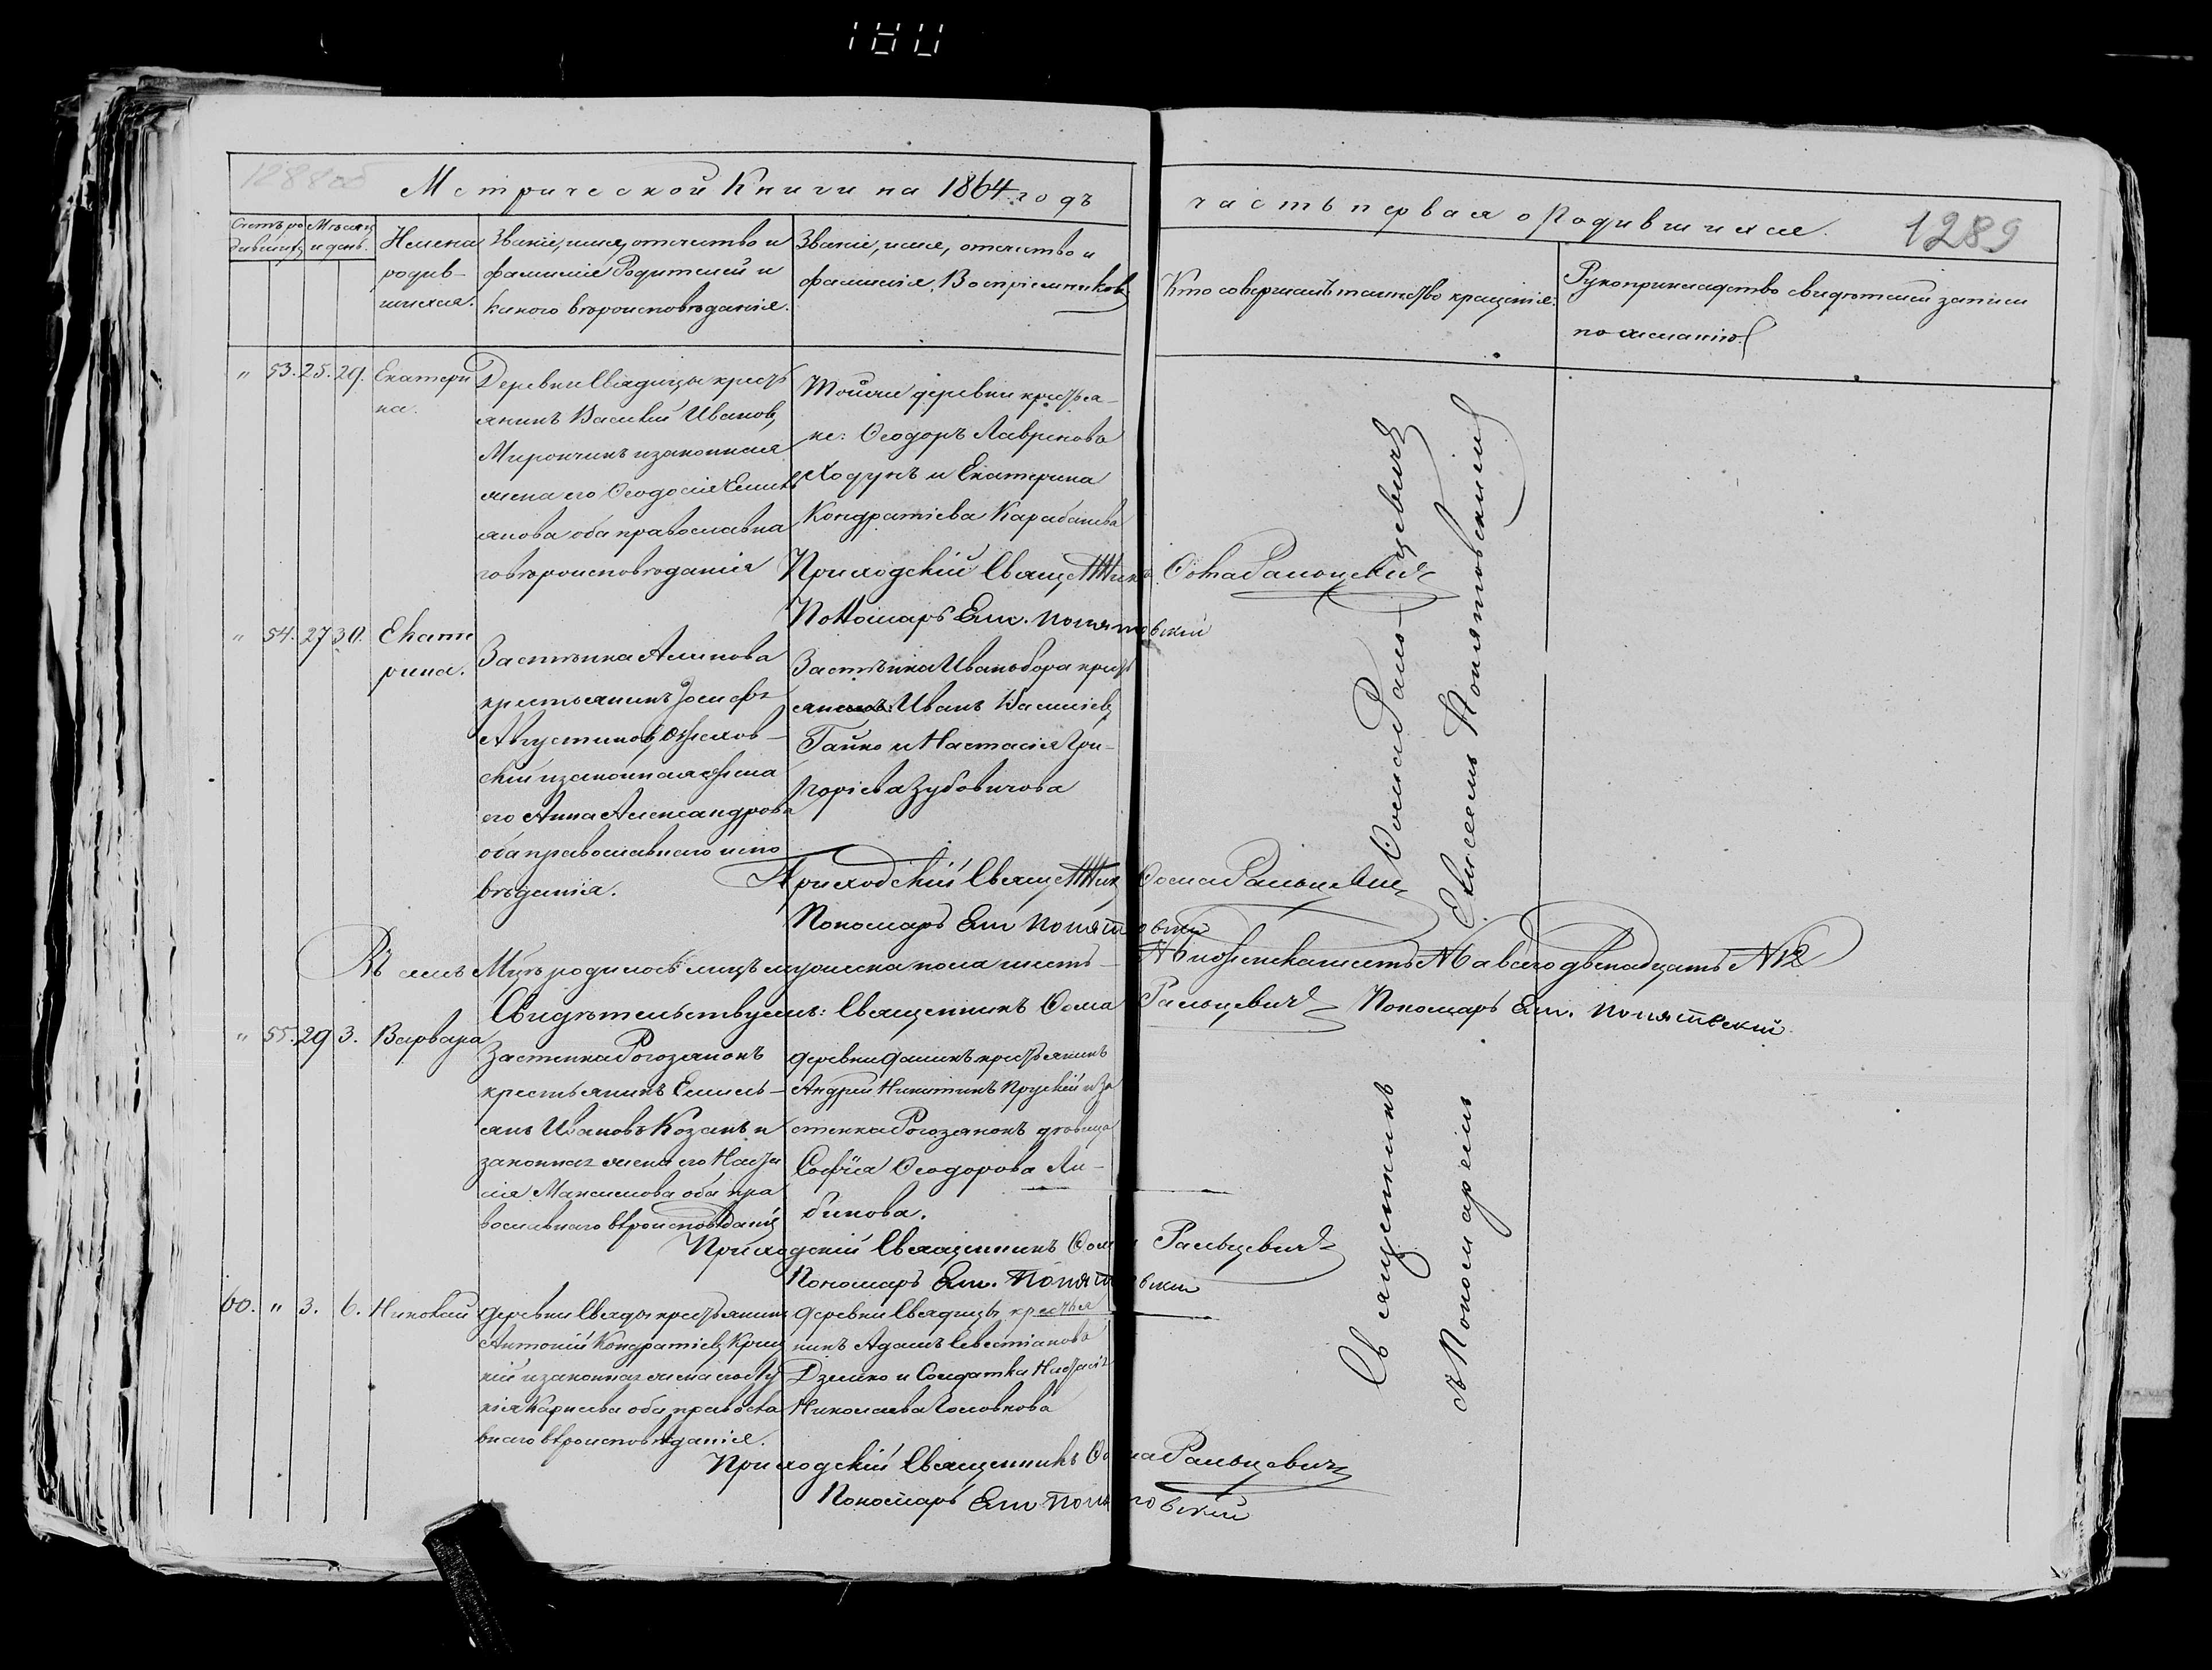 180
1288об
Метрической Книги на 1864 годъ
часть первая о Родившихся.
1289
Счетъ родившихъ
Мѣсяцъ и день.
Имена родив-
шихся.
Званіе, имя, отчество и
фамилія Родителей и
какого вѣроисповѣданія.
Званіе, имя, отчество и
фамилія Воспріемниковъ
Кто совершалъ таинство крещенія.
Рукоприкладство свидѣтелей записи
по желанію
" 53. 25. 29. Екатери
на.
Деревни Свядицы кресть
янинъ Василій Ивановъ
Мирончикъ и законная
жена его Ѳеодосія Емили
янова оба православна
го вѣроисповѣданія
Тойже деревни крестья-
не: Ѳеодоръ Лавренова
Ходунъ и Екатерина
Кондратіева Карабанева
Приходскій Священникъ Ѳома Ральцевичъ
Пономарь Ем. Понятовскій
" 54. 27 30. Екате
рина.
Застѣнка Алинова
крестьянинъ Іосифъ
Августиновъ
скій и законная жена
его Анна Александрова
оба православнаго испо
вѣданія.
Застѣнка Иваньбора кресть
Иванъ Василіевъ
Гайко и Настасія Гри-
горіева Зубовичова
Приходскій Священникъ Ѳома Ральцевичъ
Пономарь Ем Понятовскій
Въ семъ Мцѣ родилось лицъ мужеска пола шесть № 6 женска шесть № 6 а всего двенадцать № 12
Свидѣтельствуемъ: Священникъ Ѳома Ральцевичъ Пономарь Ем. Понятовскій.
" 55. 29 3. Варвара
Застенка Рогозянокъ
крестьянинъ Емиль-
янъ Ивановъ Козакъ и
законная жена его Наста
сія Максимова оба пра
вославнаго вѣроисповѣданія
деревни крестьянинъ
Андрей Никитинъ Прускій и за
стенка Рогозянокъ дѣвица
Софія Ѳеодорова Ли-
бинова.
Приходскій Священникъ Ѳома Ральцевичъ
Пономарь Ем. Понятовскій
60. " 3. 6. Николай
деревни Свяды крестьянинъ
Антоній Кондратіевъ
кій и законная жена его
Карпова оба правосла
внаго вѣроисповѣданія.
деревни Свядицы крестья
нинъ Адамъ Севестіанова
Дземко и Солдатка Настасія
Николаева Головкова
Приходскій Священникъ Ѳома Ральцевичъ
Пономарь Ем Понятовскій
Священникъ Ѳома Ральцевичъ
съ Пономаремъ Емиліемъ Понятовскимъ